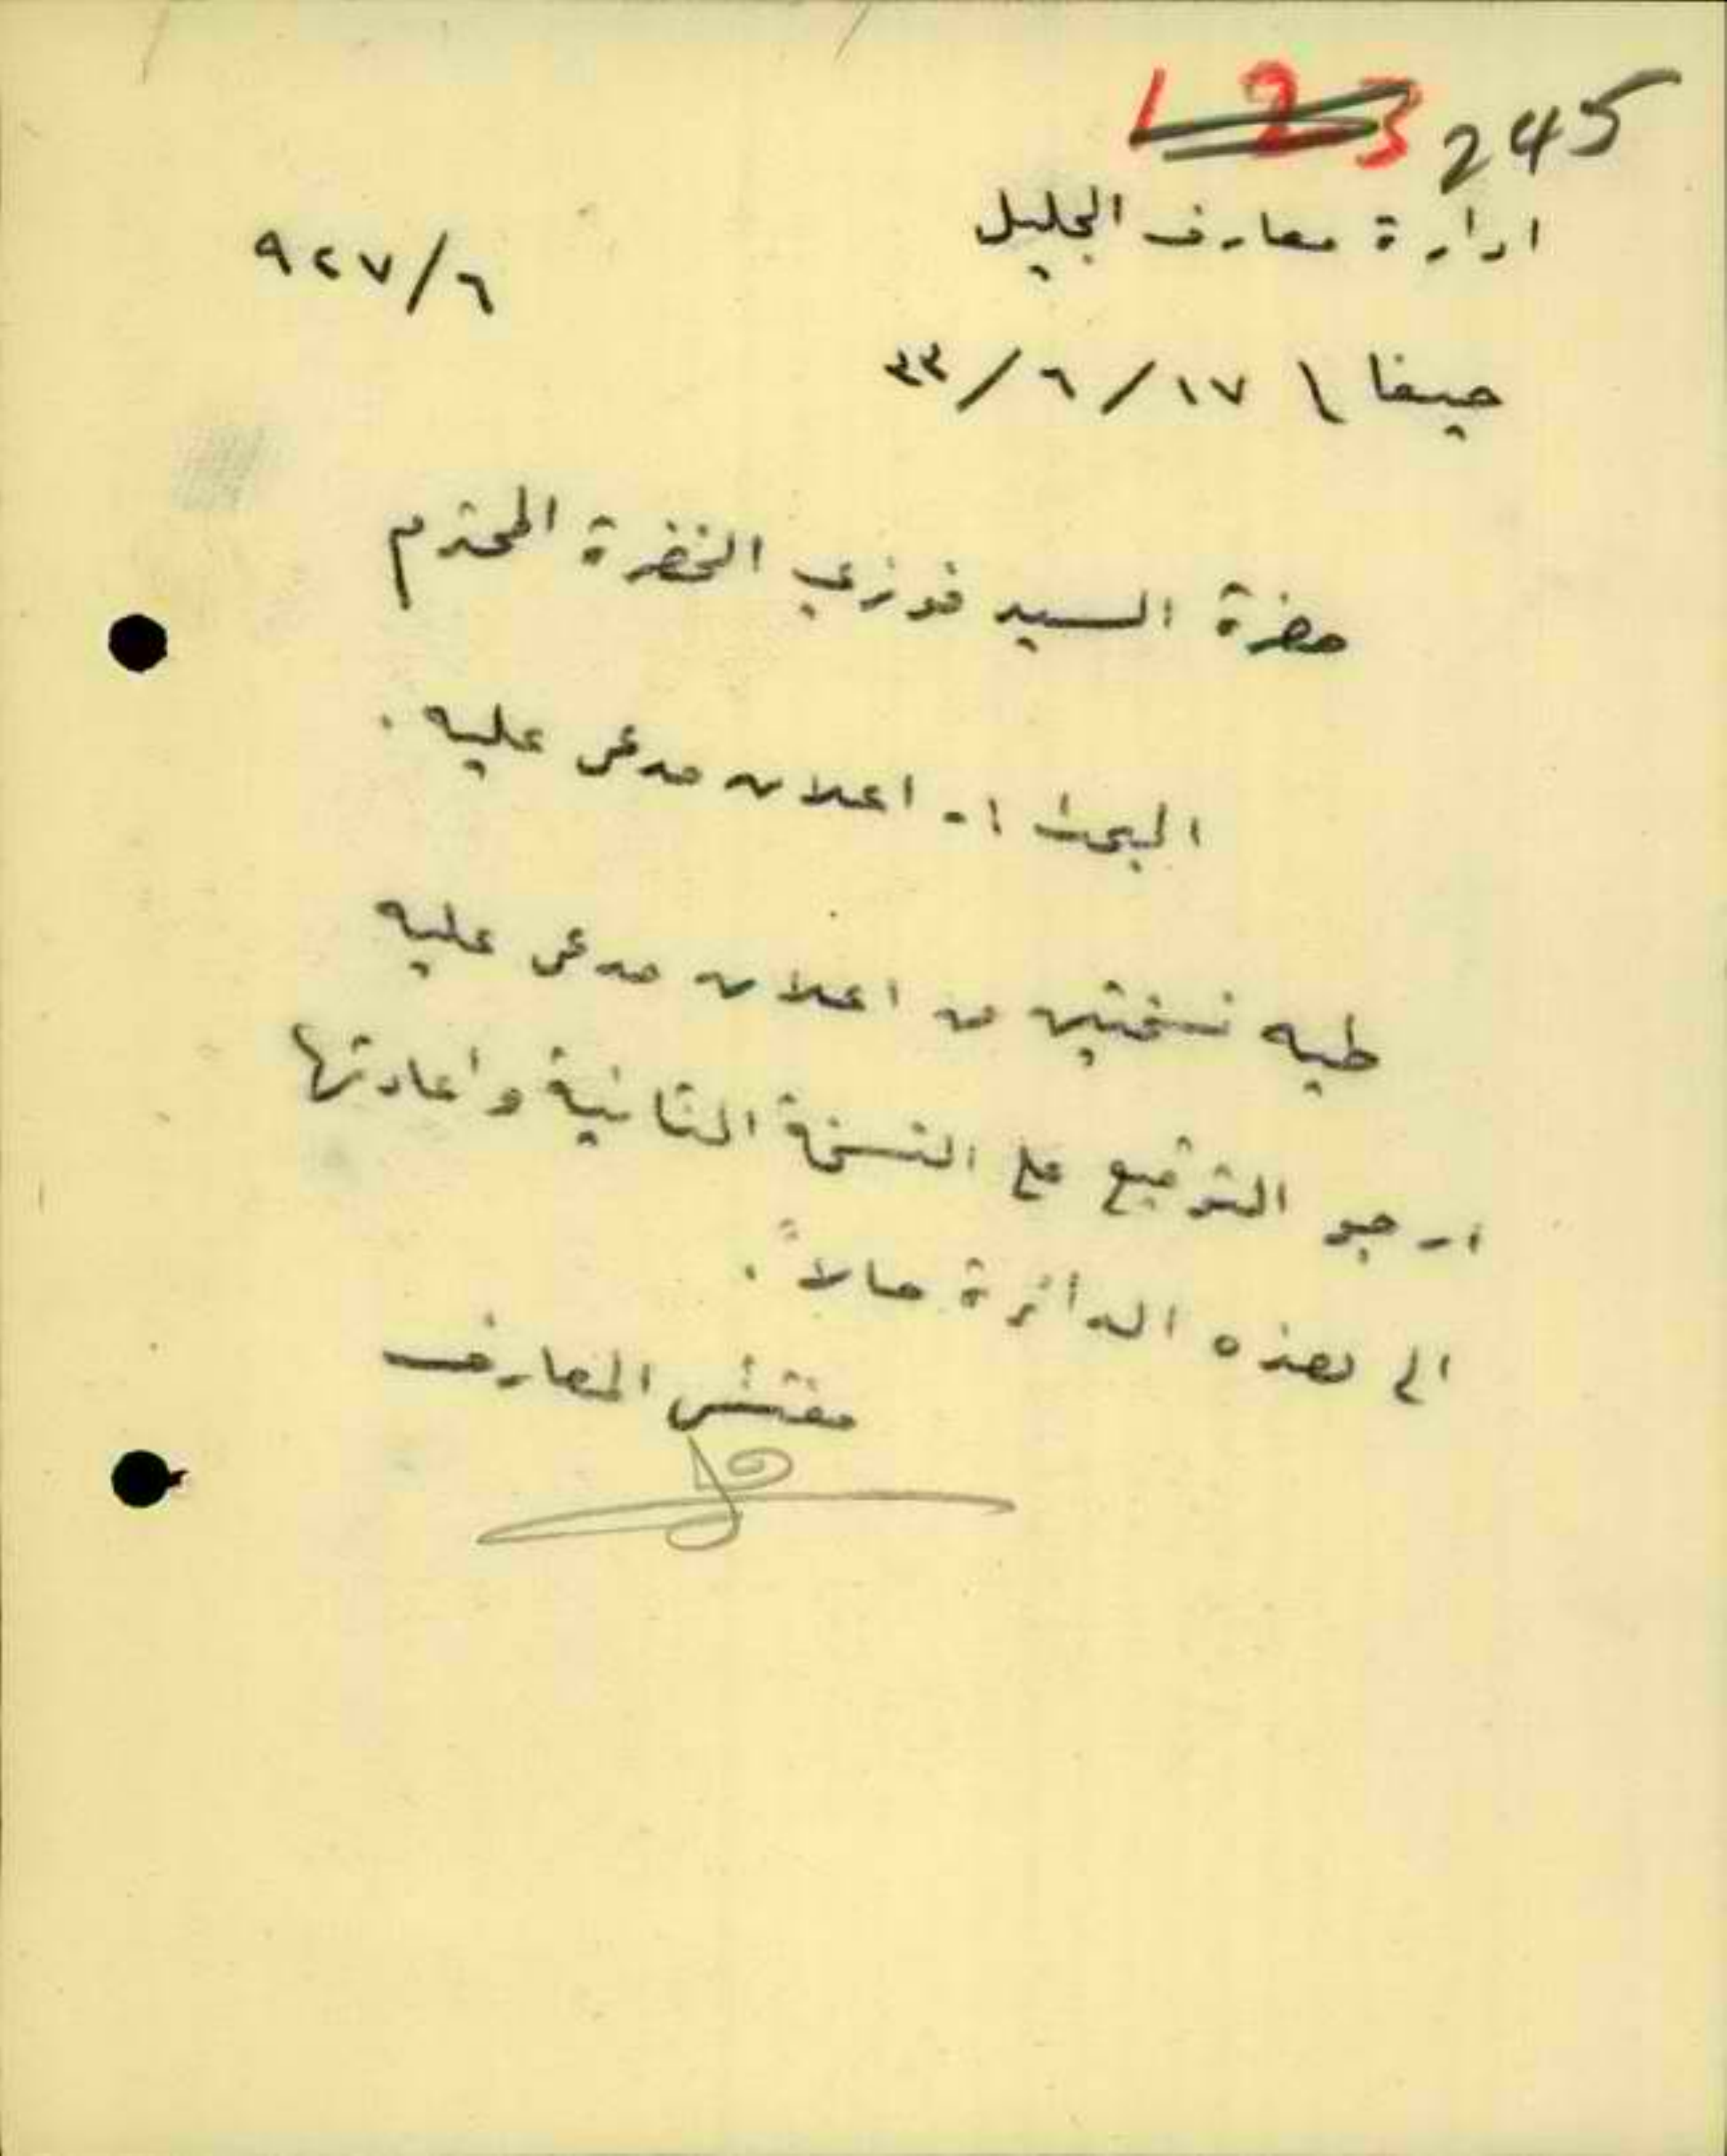 123 245
ادارة معارف الجليل
٩٢٧/٦
حيفا \ ١٧/٦/٣٣
حضرة السيد فوزي الخضرة المحترم
البحث :- اعلان مدعى عليه .
طيه نسختين من اعلان مدعى عليه
ارجو التوقيع على النسخة الثانية واعادتها
الى هذه الدائرة حالاً .
مفتش المعارف